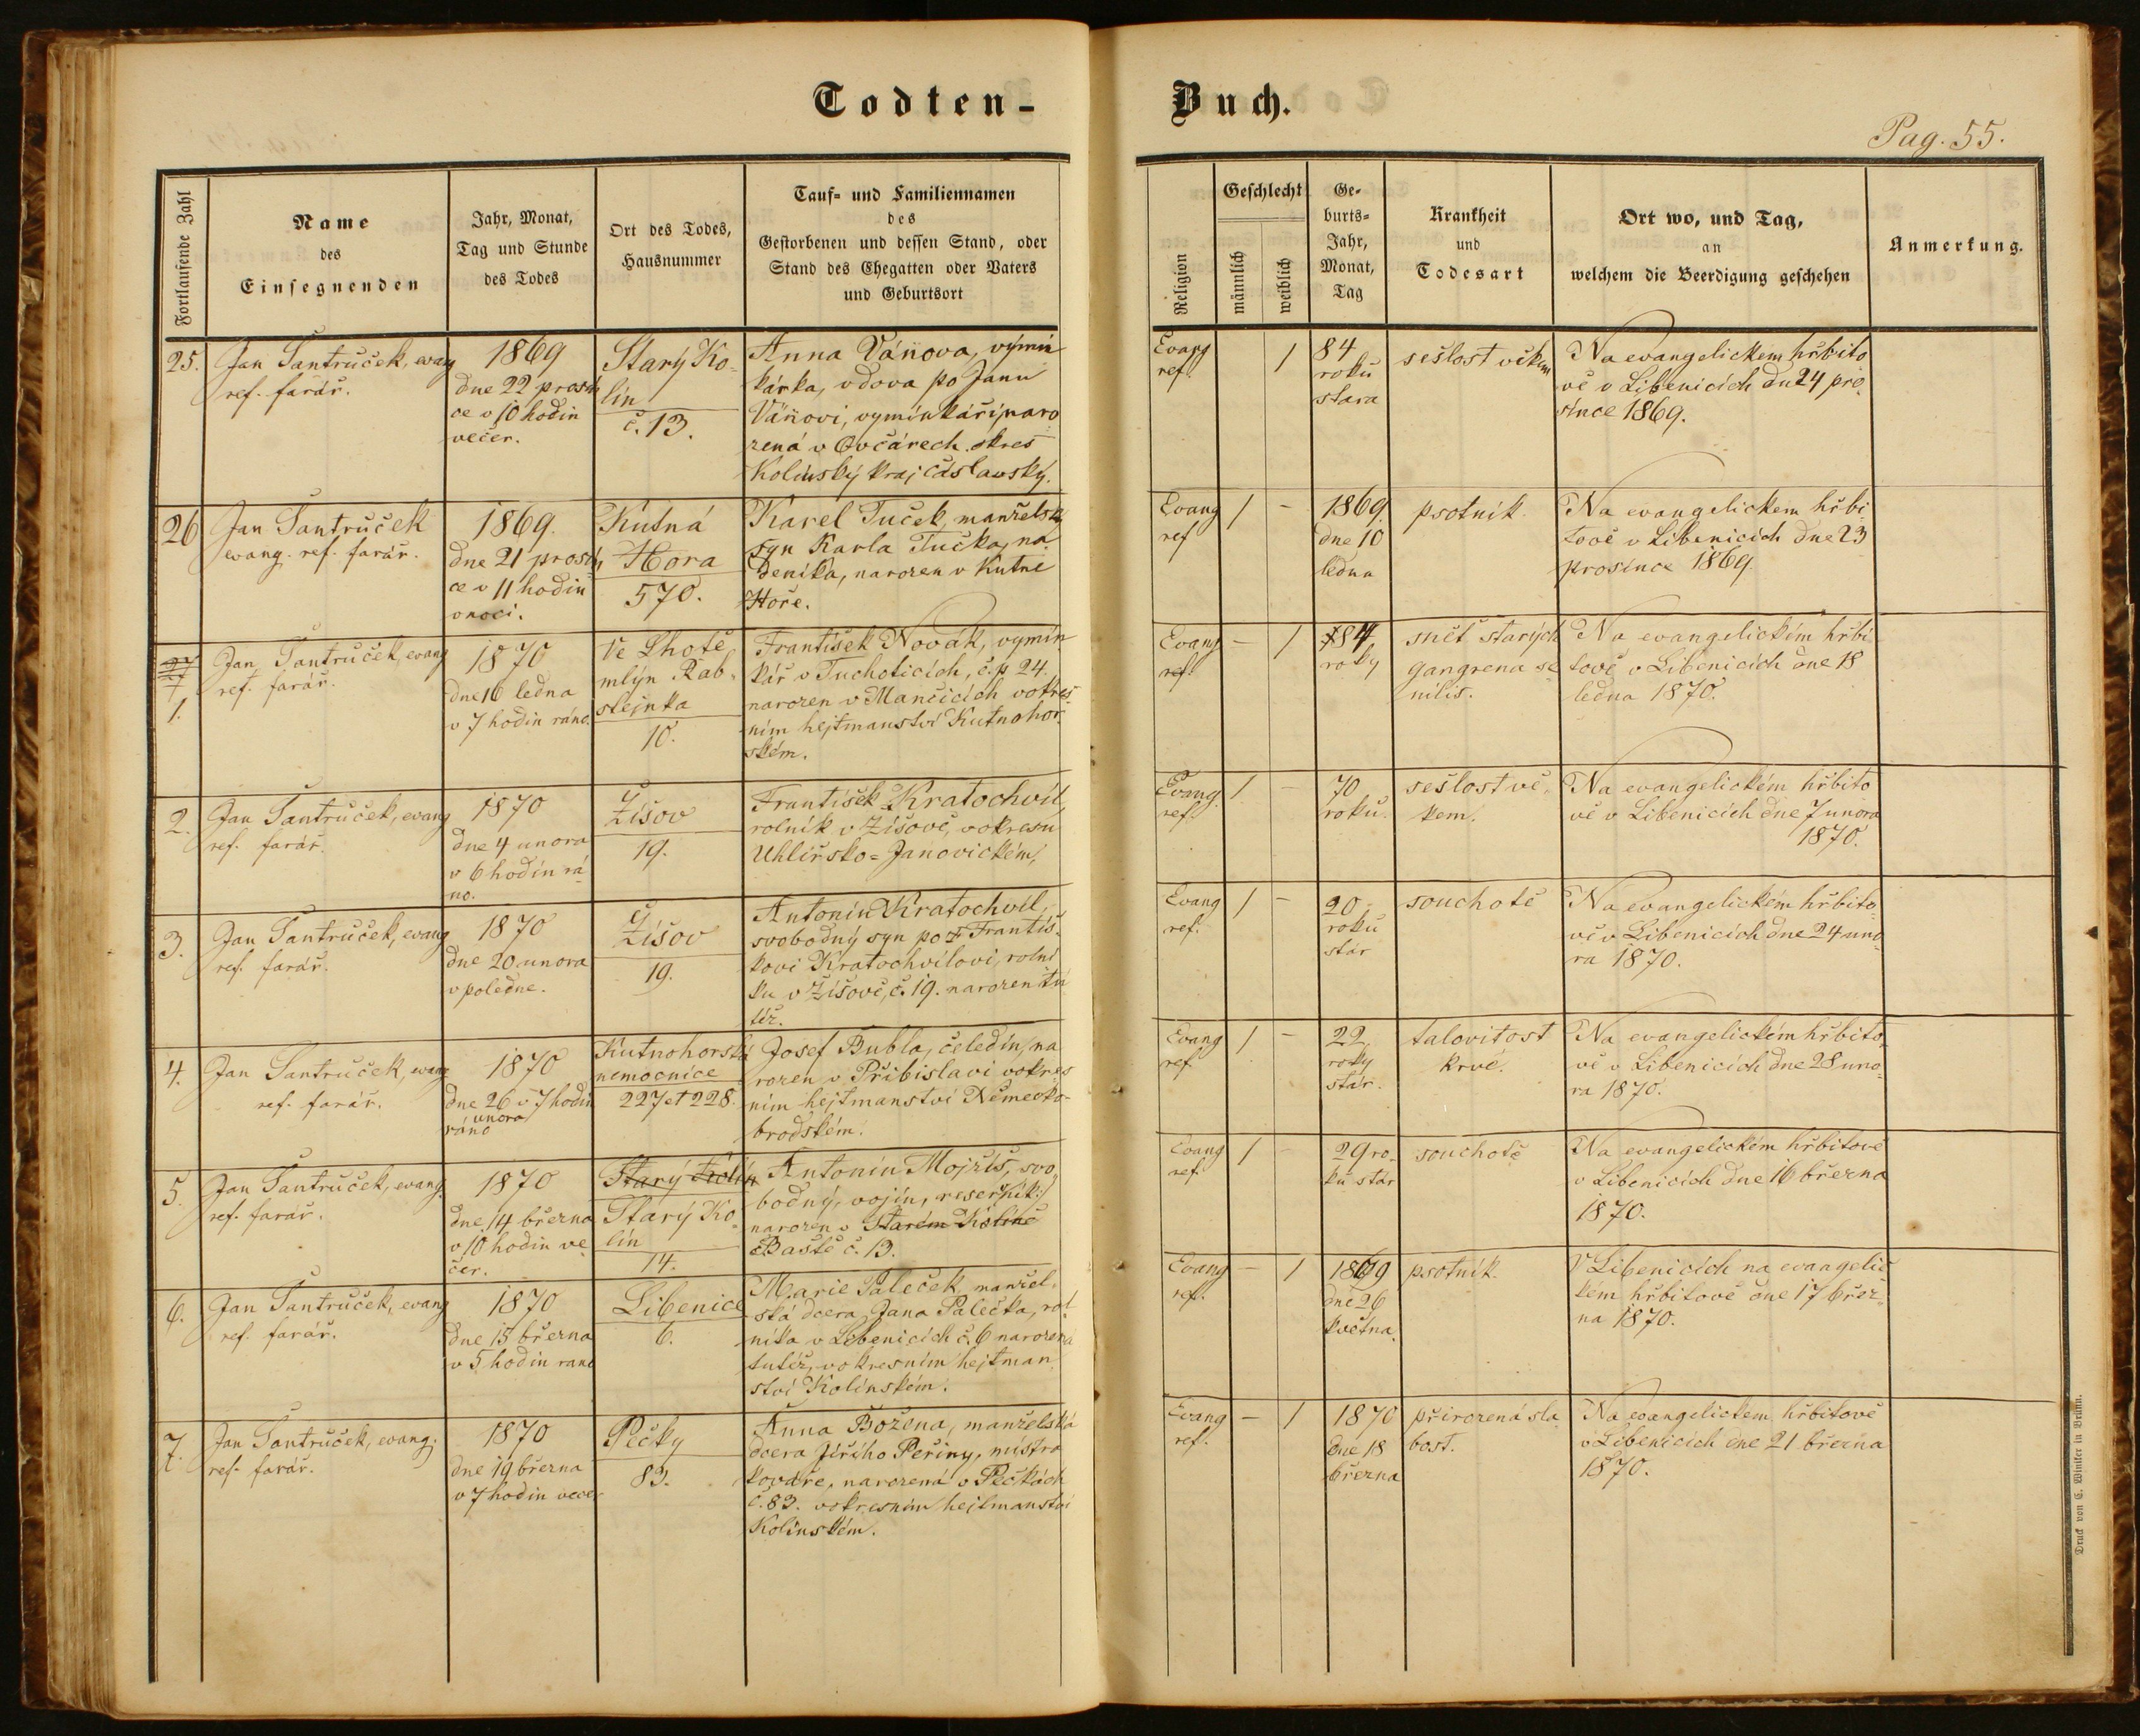 Todten-
Buch.
Pag. 55.
Fortlaufende Zahl
Name
des
Einsegnenden
Jahr, Monat,
Tag und Stunde
des Todes
Ort des Todes,
Hausnummer
Tauf- und Familiennamen
des
Gestorbenen und dessen Stand, oder
Stand des Ehegatten oder Vaters
und Geburtsort
Religion
Geschlecht
männlich
weiblich
Ge-
burts-
Jahr,
Monat,
Tag
Krankheit
und
Todesart
Ort wo, und Tag,
an
welchem die Beerdigung geschehen
Anmerkung.
25.
Jan Šantrůček, evang
ref. farář.
1869
dne 22 prosin
ce v 10 hodin
večer.
Starý Ko-
lín
č. 13.
Anna Váňova, výmin
kárka, vdova po Janu
Váňovi, vyminkáři, naro
zená v Ovčárech okres
Kolínský kraj Čáslavský.
Evang
ref.
1
84
roků
stara
sešlost věkem
Na evangelickém hřbito
vě v Libenicích dne 24 pro
since 1869.
26
Jan Šantrůček
evang. ref. farář.
1869.
dne 21 prosin
ce v 11 hodin
v noci.
Kutná
Hora
570.
Karel Tuček, manželsk
syn Karla Tučka, na
deníka, narozen v Kutné
Hoře.
Evang
ref
1 -
1869.
dne 10
ledna
psotník.
Na evangelickem hřbi
tově v Libenicích dne 23
prosince 1869.
27
1.
Jan Šantrůček, evang
ref. farář.
1870
dne 16 ledna
v 7 hodin ráno.
Ve Lhotě
mlýn Rab-
štejnka
10.
František Novák, vymín
kář v Tuchoticích, č. p 24.
narozen v Mančicích v okres
ním hejtmanství Kutnohor
ském.
Evang
ref.
- 1
84
roky
snět starých
gangrena se
nilis.
Na evangelickém hřbi
tově v Libenicích dne 18
ledna 1870.
2.
Jan Šantrůček, evang
ref. farář.
1870
dne 4 unora
v 6 hodin rá
no.
Žíšov
19.
František Kratochvíl,
rolník v Žíšově, v okresu
Uhlířsko-Janovickém,
Evang.
ref.
1 -
70
roků.
sešlost vě-
kem.
Na evangelickém hřbito
vě v Libenicích dne 7 unora
1870.
3.
Jan Šantrůček, evang
ref. farář.
1870
dne 20 unora
v poledne.
Žíšov
19.
Antonín Kratochvíl,
svobodný syn po Františ-
kovi Kratochvílovi, rolní
ku v Žíšově, č. 19. narozen tu
též.
Evang
ref.
1 -
20
roků
stár
souchotě
Na evangelickém hřbito-
vě v Libenicích dne 24 uno
ra 1870.
4.
Jan Šantrůček, evang
ref. farář.
1870
dne 26 v 7 hodin
unora
ráno
Kutnohorská
nemocnice
227 et 228.
Josef Bubla, čeledín, na
rozen v Přibislavi v okres
ním hejtmanství Německo-
brodském.
Evang
ref
1 -
22
roky
stár.
talovitost
krve.
Na evangelickém hřbito-
vě v Libenicích dne 28 uno-
ra 1870.
5.
Jan Šantrůček, evang.
ref. farář.
1870
dne 14 března
v 10 hodin ve
čer.
Starý Kolín
Starý Ko-
lín
14.
Antonín Mojžíš, svo
bodný, vojín,
narozen v Starém Kolíně
Baště č. 13.
Evang
ref
1
29 ro-
ků stár
souchotě
Na evangelickém hřbitově
v Libenicích dne 16 března
1870.
6.
Jan Šantrůček, evang
ref. farář.
1870
dne 15 března
v 5 hodin rano
Libenice
6.
Marie Paleček, manžel-
ská dcera Jana Palečka, rol
níka v Libenicích č. 6 narozena
tutéž, v okresním hejtman
ství Kolínském.
Evang
ref.
- 1
1869
dne 26
května.
psotník.
V Libenicích na evangelic
kém hřbitově dne 17 břez-
na 1870.
7.
Jan Šantrůček, evang.
ref. farář.
1870
dne 19 března
v 7 hodin večer
Pečky
83.
Anna Božena, manželská
dcera Jiřího Peřiny, mistra
kováře, narozená v Pečkách
č. 83. v okresním hejtmanství
Kolínském.
Evang
ref.
- 1
1870
dne 18
března
přirozená sla
bost.
Na evangelickem hřbitově
v Libenicích dne 21 března
1870.
Druck von C. Winiker in Brünn.